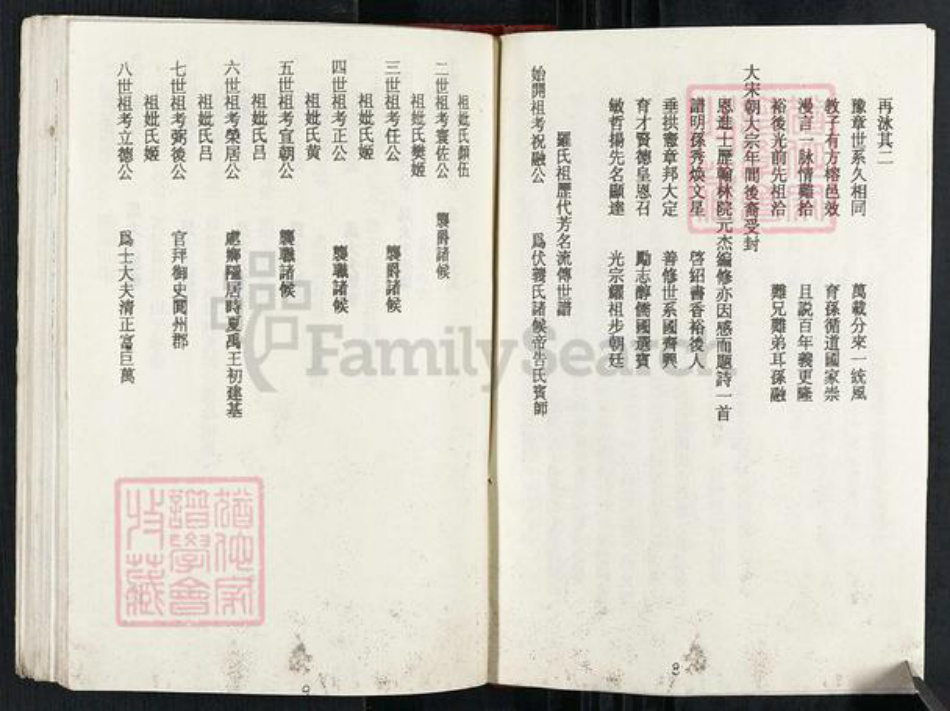 再泳其二
豫章世系久相同　萬載分來一統風
教子有方榕邑效　育孫循道國家崇
漫言一脉情難拾　且説百年義更隆
裕後光前先祖洽　難兄難弟耳孫融
大宋朝大宗年間後裔受封
恩進士歷翰林院元杰編修亦因感而題詩一首
譜明孫秀煥文星　啓紹書香裕後人
垂拱憲章邦大定　善修世系國齊興
育才賢德皇恩召　勵志醇儒國選賓
敏哲揚先名顯達　光宗耀祖步朝廷
羅氏祖歷代芳名流傳世譜
始開祖考祝融公　爲伏羲氏諸候帝告氏賓師
8
祖妣氏顔伍
二世祖考寰佐公　襲爵諸候
祖妣氏樊姬
三世祖考任公　襲爵諸候
祖妣氏姬
四世祖考正公　襲職諸候
祖妣氏黄
五世祖考宣朝公　襲職諸候
祖妣氏吕
六世祖考榮居公　處鄉隱居時夏禹王初建基
祖妣氏吕
七世祖考弼後公　官拜御史閬州郡
祖妣氏姬
八世祖考立德公　爲士大夫清正富巨萬
9
FamilySearch